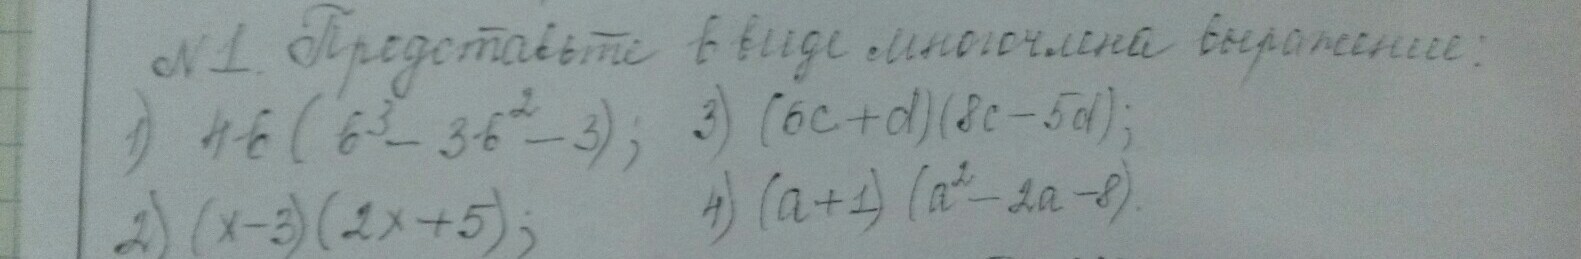 №1. Представьте в виде многочлена выражение:
1) 4b(b³-3b²-3); 3) (6c+d)(8c-5d);
2) (x-3)(2x+5); 4) (a+1)(a²-2a-8).